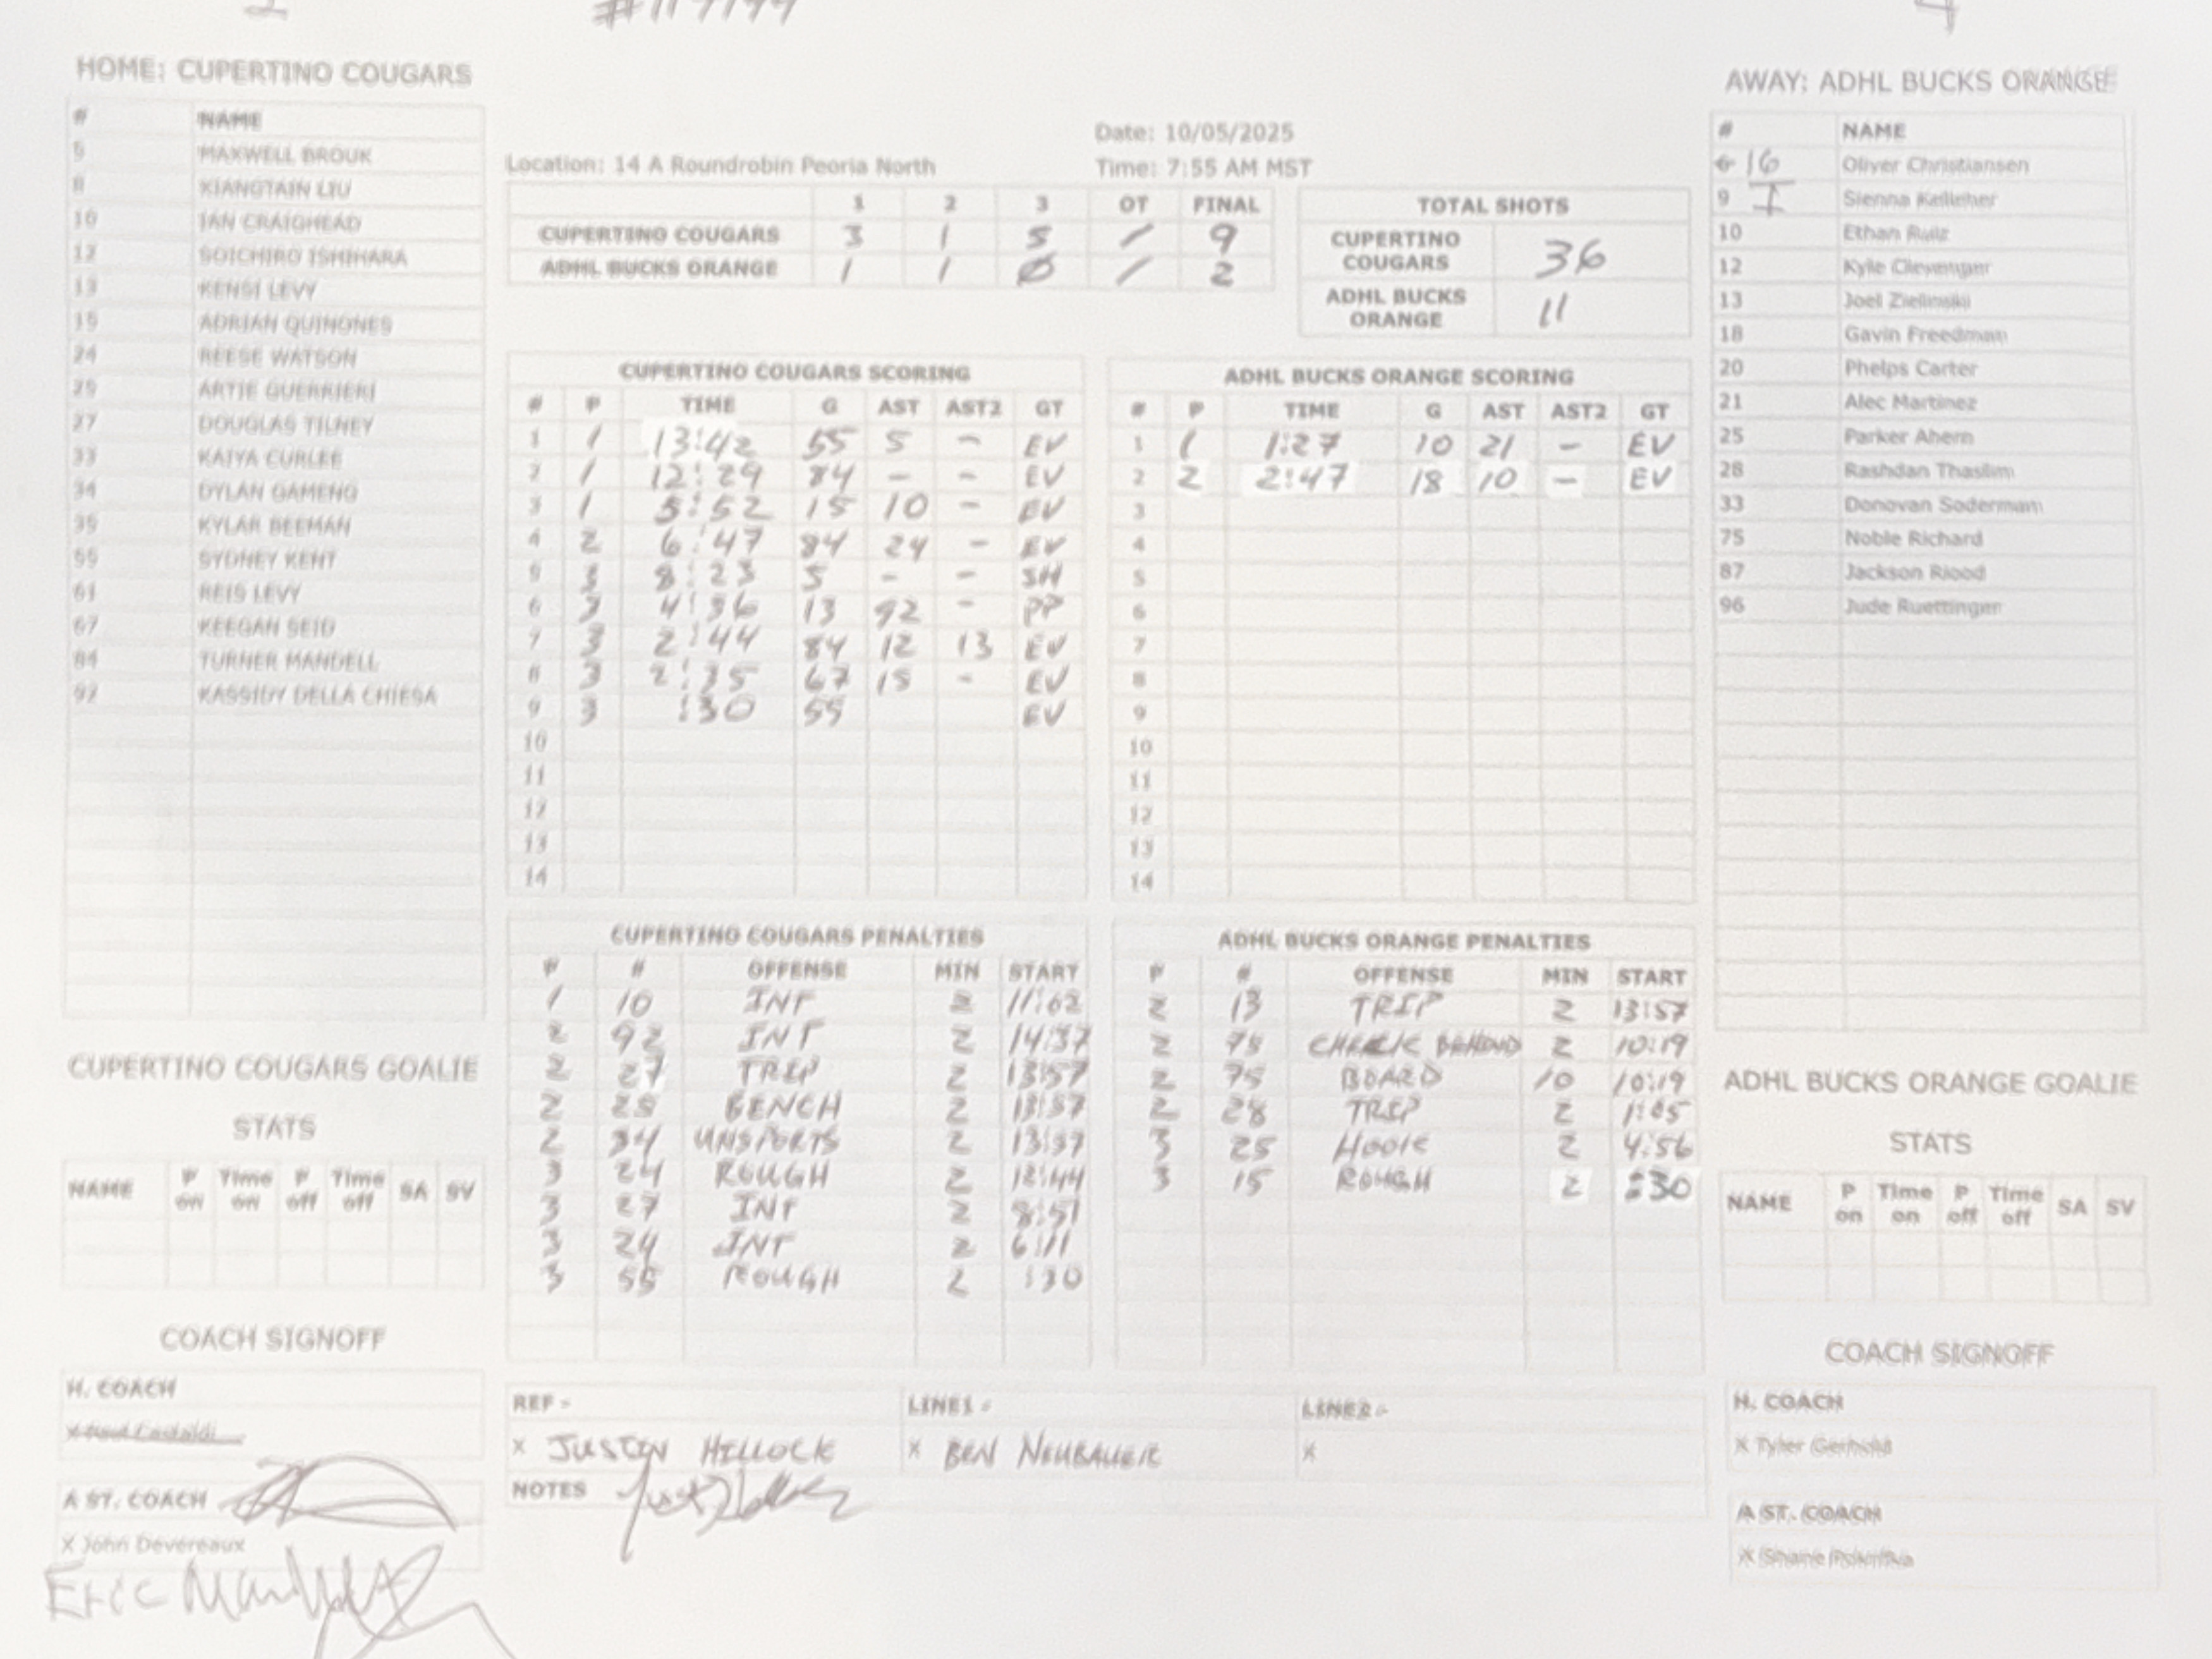 HOME: CUPERTINO COUGARS
# NAME
5 MAXWELL BROUK
8 XIANGTAIN LIU
10 IAN CRAIGHEAD
12 SOICHIRO ISHIHARA
13 KENSI LEVY
15 ADRIAN QUINONES
24 REESE WATSON
25 ARTIE GUERRIERI
27 DOUGLAS TILNEY
33 KAIYA CURLEE
34 DYLAN GAMENG
35 KYLAR BEEMAN
55 SYDNEY KENT
61 REIS LEVY
67 KEEGAN SEID
84 TURNER MANDELL
92 KASSIDY DELLA CHIESA
CUPERTINO COUGARS GOALIE
STATS
NAME P on Time on P off Time off SA SV
COACH SIGNOFF
H. COACH
A ST. COACH
X John Devereaux
Eric
Date: 10/05/2025
Location: 14 A Roundrobin Peoria North
Time: 7:55 AM MST
1 2 3 OT FINAL
CUPERTINO COUGARS 3 1 5 / 9
ADHL BUCKS ORANGE 1 1 Ø / 2
TOTAL SHOTS
CUPERTINO COUGARS 36
ADHL BUCKS ORANGE 11
CUPERTINO COUGARS SCORING
# P TIME G AST AST2 GT
1 1 13:42 55 5 - EV
2 1 12:29 84 - - EV
3 1 5:52 15 10 - EV
4 2 6:47 84 24 - EV
5 3 8:23 5 - - SH
6 3 4:36 13 92 - PP
7 3 2:44 84 12 13 EV
8 3 2:35 67 15 - EV
9 3 :30 55 EV
10
11
12
13
14
ADHL BUCKS ORANGE SCORING
# P TIME G AST AST2 GT
1 1 1:27 10 21 - EV
2 2 2:47 18 10 - EV
3
4
5
6
7
8
9
10
11
12
13
14
CUPERTINO COUGARS PENALTIES
P # OFFENSE MIN START
1 10 INT 2
2 92 INT 2 14:37
2 27 TRIP 2 13:57
2 25 BENCH 2 13:57
2 34 UNSPORTS 2 13:57
3 24 ROUGH 2 12:44
3 27 INT 2 8:51
3 24 INT 2 6:11
3 55 ROUGH 2 :30
ADHL BUCKS ORANGE PENALTIES
P # OFFENSE MIN START
2 13 TRIP 2 13:57
2 75 CHECK BEHIND 2 10:19
2 75 BOARD 10 10:19
2 28 TRIP 2 1:05
3 25 HOOK 2 4:56
3 15 ROUGH 2 :30
REF -
X JUSTIN HILLOCK
LINE1 -
X BEN NEUBAUER
LINE2 -
X
NOTES
AWAY: ADHL BUCKS ORANGE
# NAME
16 Oliver Christiansen
9 Sienna Kelleher
10 Ethan Ruiz
12 Kyle Clevenger
13 Joel Zielinski
18 Gavin Freedman
20 Phelps Carter
21 Alec Martinez
25 Parker Ahern
28 Rashdan Thaslim
33 Donovan Soderman
75 Noble Richard
87 Jackson Riood
96 Jude Ruettinger
ADHL BUCKS ORANGE GOALIE
STATS
NAME P on Time on P off Time off SA SV
COACH SIGNOFF
H. COACH
X Tyler
A ST. COACH
X Shane